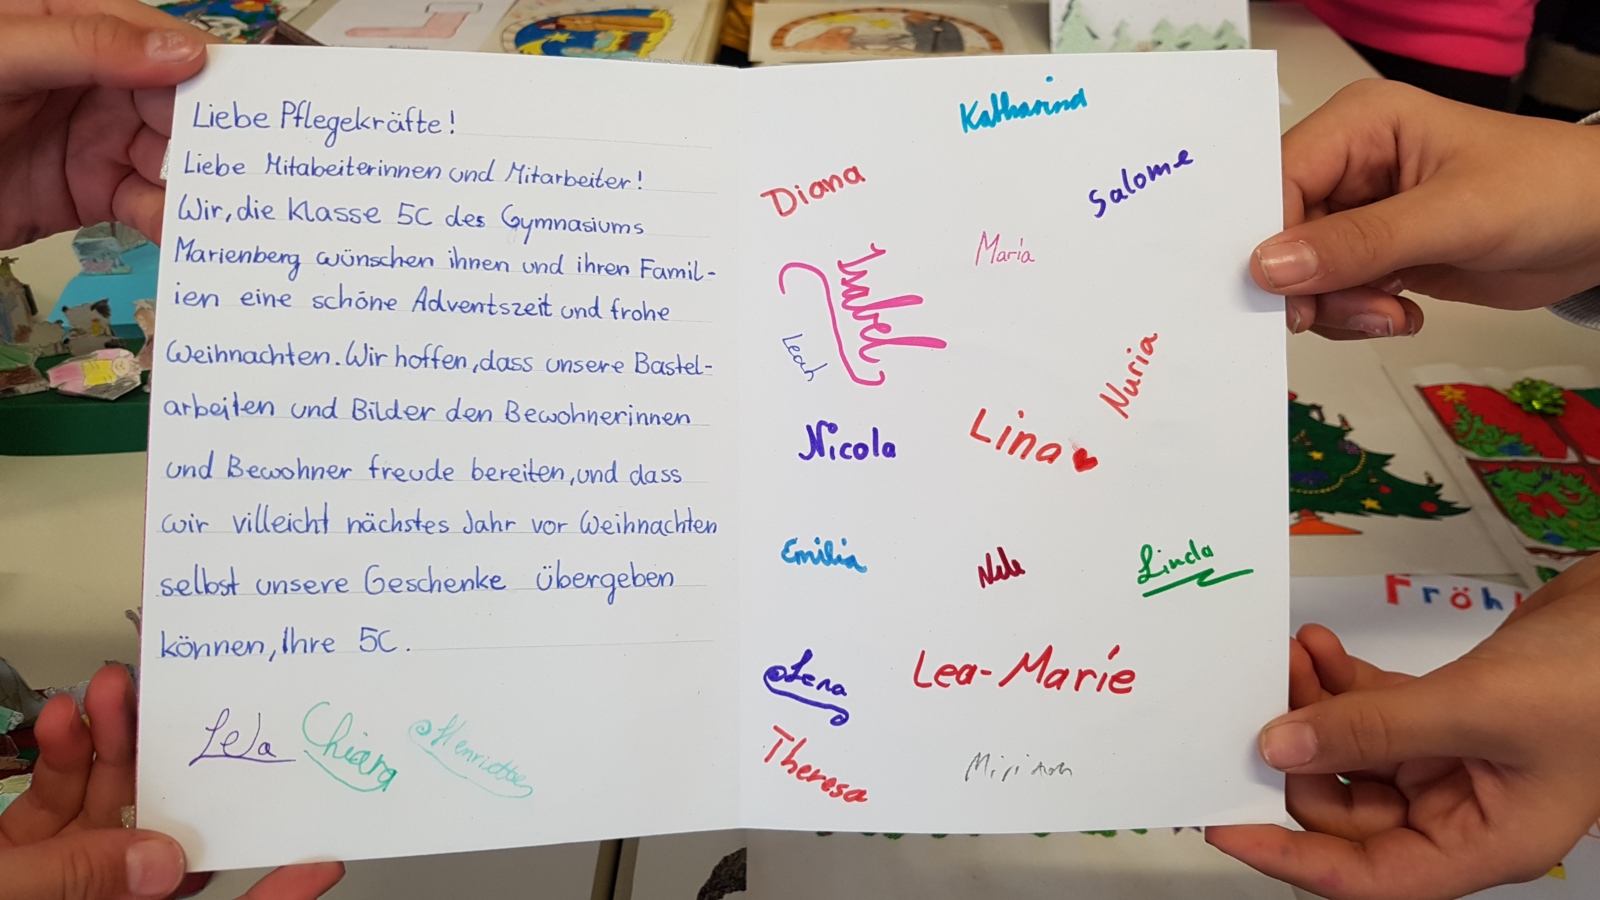 Liebe Pflegekräfte!
Liebe Mitabeiterinnen und Mitarbeiter!
Wir, die Klasse 5C des Gymnasiums
Marienberg wünschen ihnen und ihren Famil-
ien eine schöne Adventszeit und frohe
Weihnachten. Wir hoffen, dass unsere Bastel-
arbeiten und Bilder den Bewohnerinnen
und Bewohner freude bereiten, und dass
wir villeicht nächstes Jahr vor Weihnachten
selbst unsere Geschenke übergeben
können, Ihre 5C.
Chiara
Henriette
Katharina
Diana
Salome
Maria
Isabel
Leah
Nuria
Nicola
Lina
Emilia
Nele
Linda
Lena
Lea-Marie
Theresa
Miriam
Fröhl